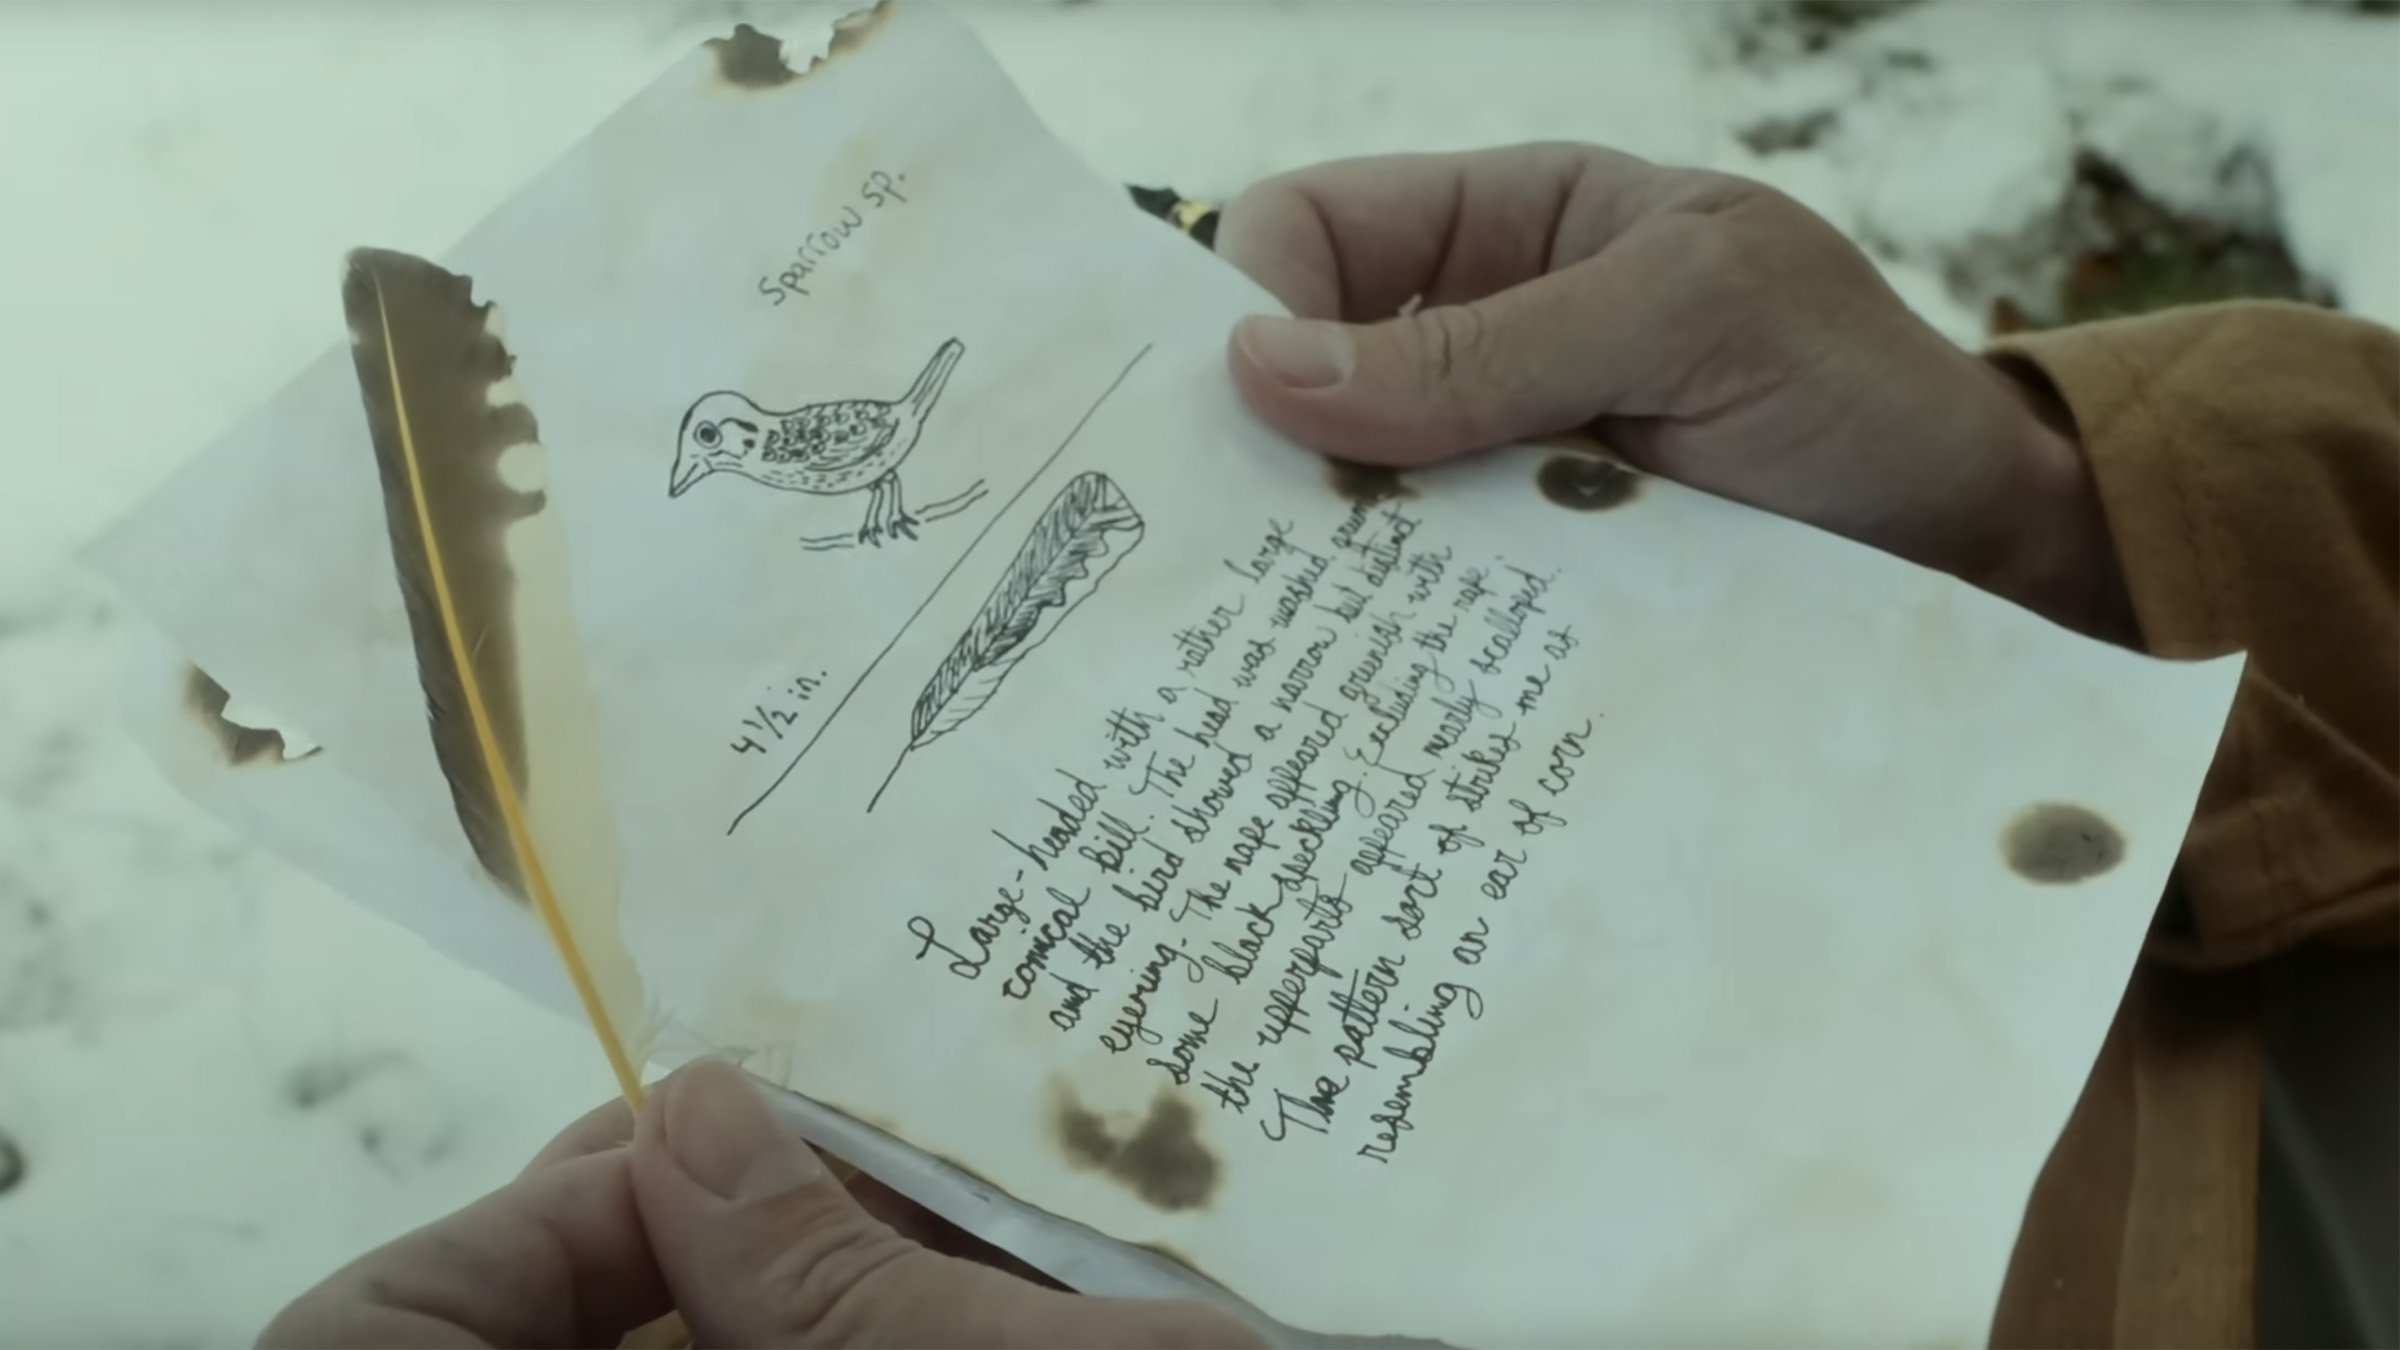 Sparrow sp.
4 1/2 in.
Large-headed with a rather large
conical bill. The head was washed
and the bird showed a narrow but distinct
eyering. The nape appeared greenish with
some black speckling. Excluding the nape
the upperparts appeared nearly scalloped.
The pattern sort of strikes me as
resembling an ear of corn.